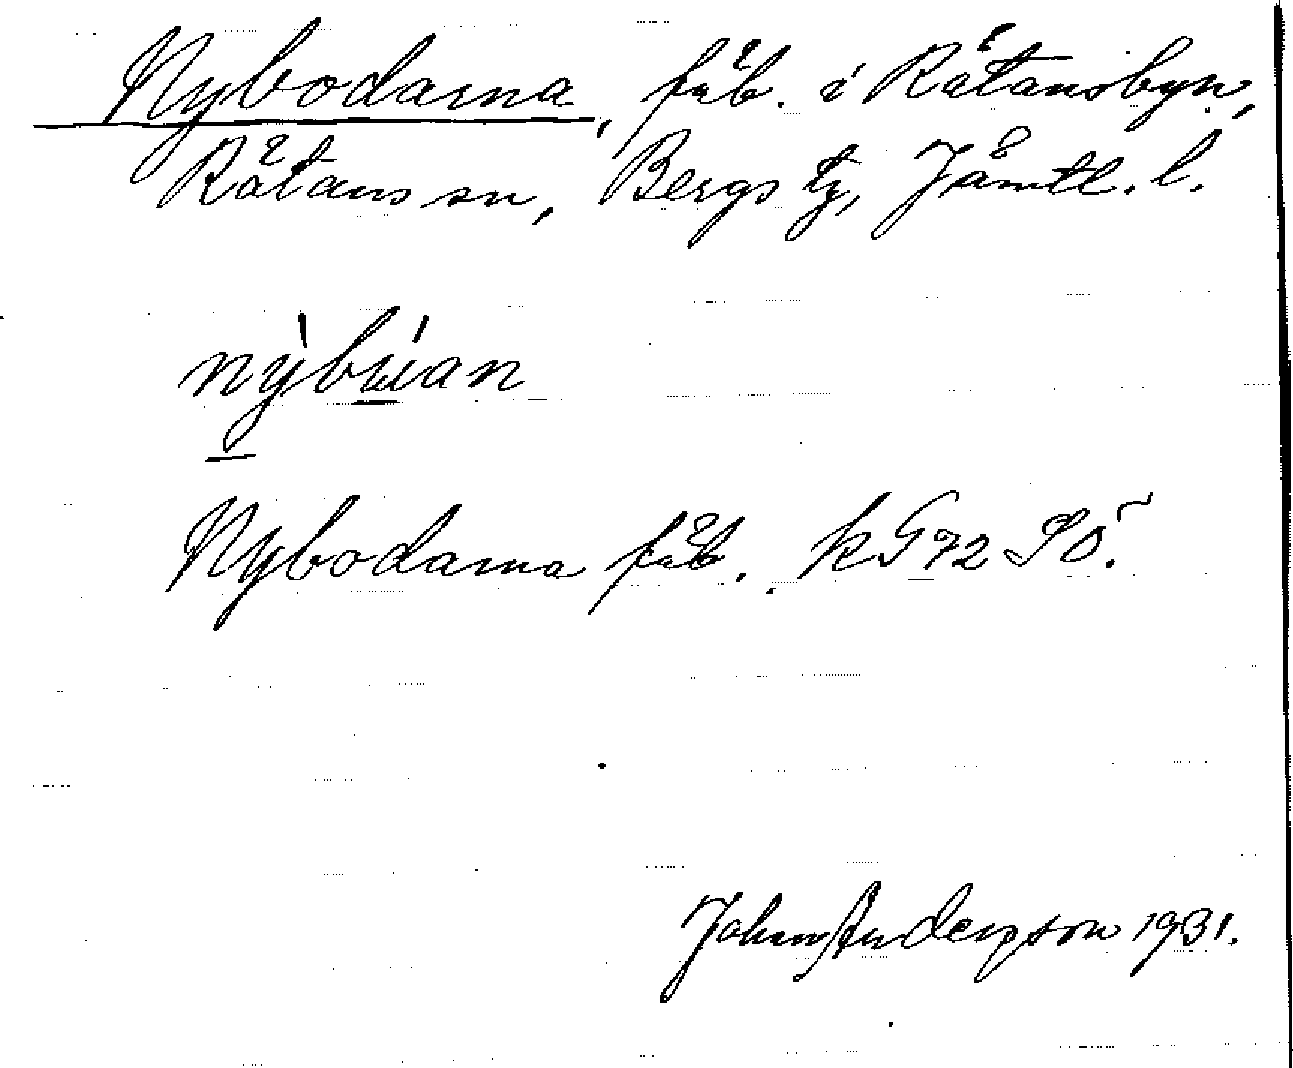 Nybodarna, fäb. i Rätansbyn,
Rätans sn, Bergs tg, Jämtl. l.
Nybodarna fäb. kG72 SO.
Johan Anderson 1931.